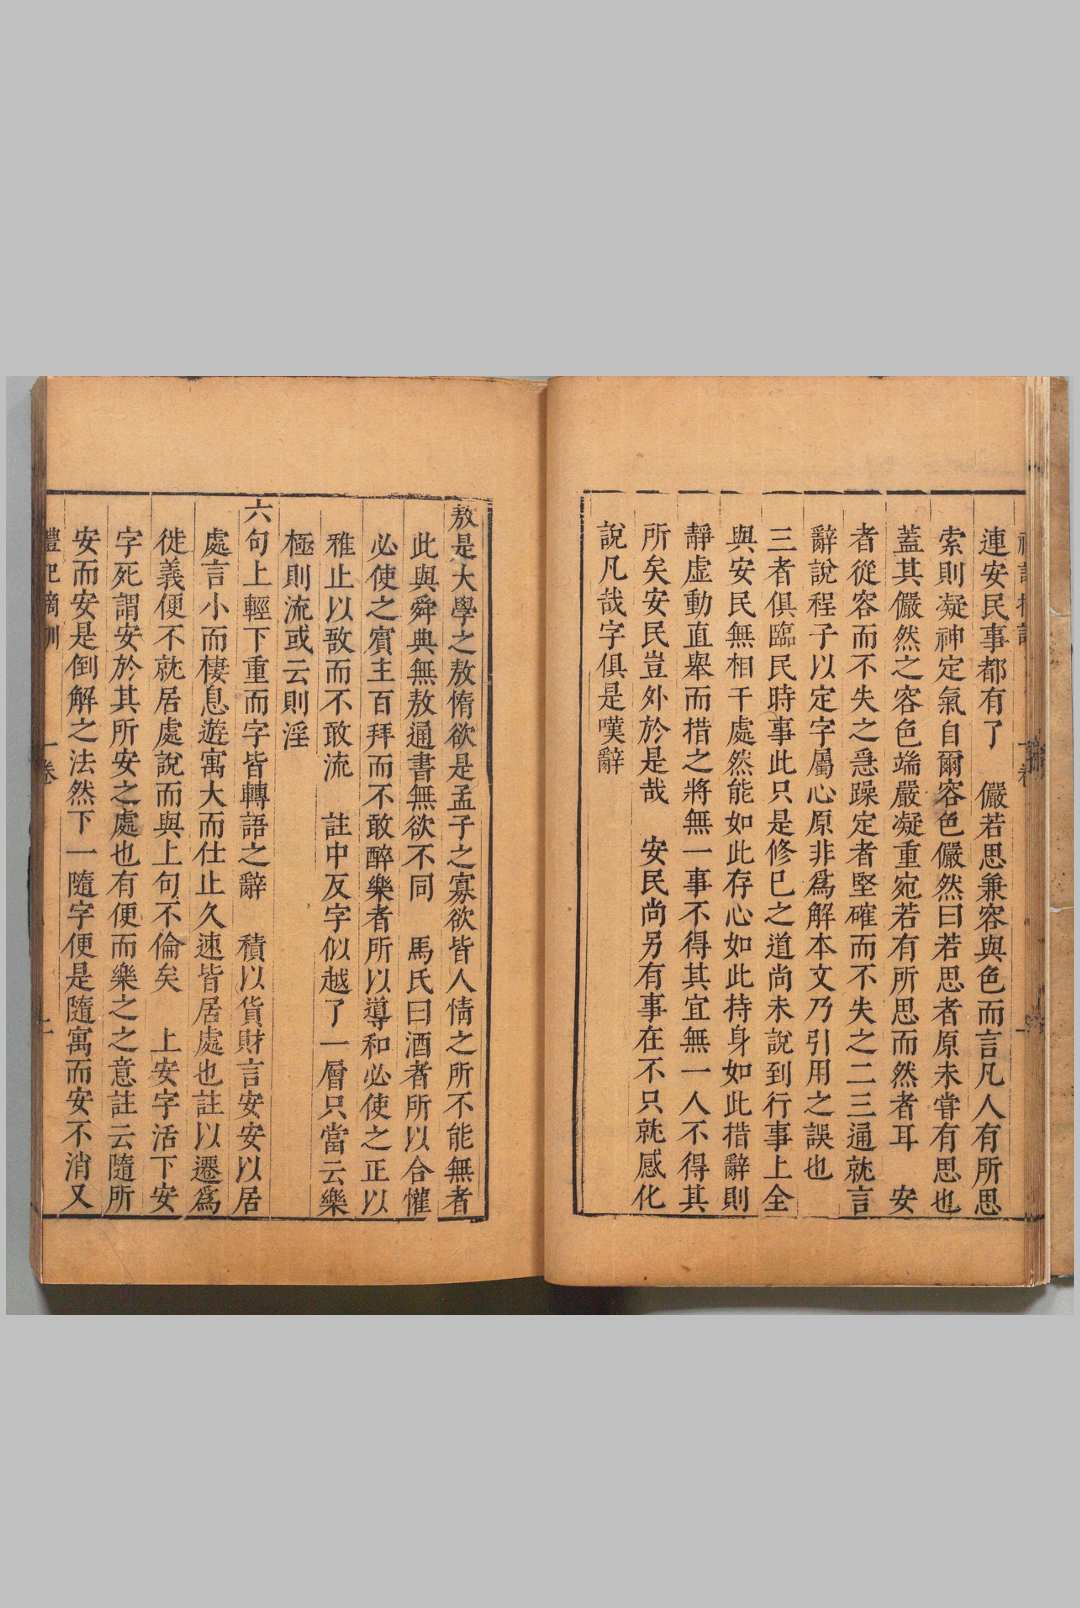 連安民事都有了　儼若思兼容與色而言凡人有所思
索則凝神定氣自爾容色儼然曰若思者原未嘗有思也
蓋其儼然之容色端嚴凝重宛若有所思而然者耳　安
者從容而不失之急躁定者堅確而不失之二三通就言
辭說程子以定字屬心原非為解本文乃引用之誤也
三者俱臨民時事此只是修巳之道尚未說到行事上全
與安民無相干處然能如此存心如此持身如此措辭則
靜虛動直舉而措之將無一事不得其宜無一人不得其
所矣安民豈外於是哉　安民尚另有事在不只就感化
說凡哉字俱是嘆辭
敖是大學之敖惰欲是孟子之寡欲皆人情之所不能無者
此與舜典無敖通書無欲不同　馬氏曰酒者所以合懽
必使之賓主百拜而不敢醉樂者所以導和必使之正以
雅止以敔而不敢流　註中反字似越了一層只當云樂
極則流或云則淫
六句上輕下重而字皆轉語之辭　積以貨財言安安以居
處言小而棲息遊寓大而仕止久速皆居處也註以遷為
徙義便不就居處說而與上句不倫矣　上安字活下安
字死謂安於其所安之處也有便而樂之之意註云隨所
安而安是倒解之法然下一隨字便是隨寓而安不消又
禮記摘訓　一卷